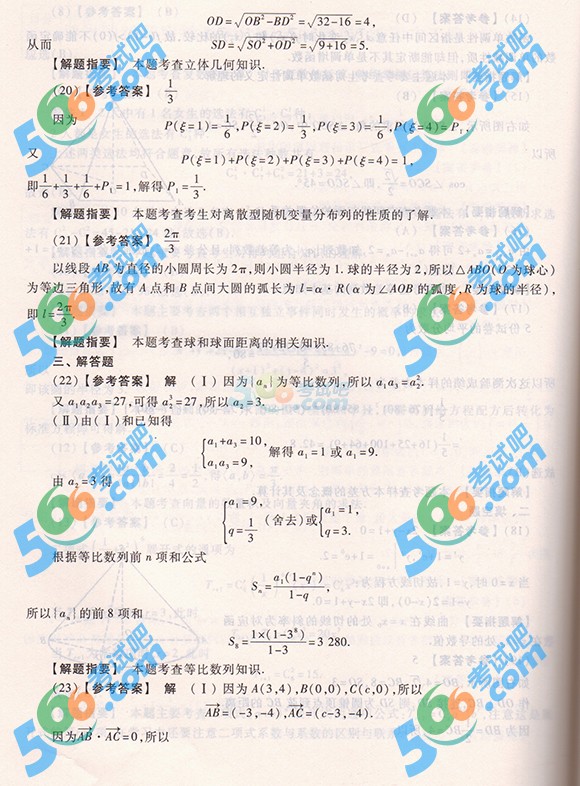 OD=√OB²-BD²=√32-16=4,
从而 SD=√SO²+OD²=√9+16=5.
【解题指要】 本题考查立体几何知识.
(20)【参考答案】 1/3
因为
P(ξ=1)=1/6,P(ξ=2)=1/3,P(ξ=3)=1/6,P(ξ=4)=P₁,
又 P(ξ=1)+P(ξ=2)+P(ξ=3)+P(ξ=4)=1,
即1/6+1/3+1/6+P₁=1,解得 P₁=1/3.
【解题指要】 本题考查考生对离散型随机变量分布列的性质的了解.
(21)【参考答案】 2π/3
以线段 AB 为直径的小圆周长为 2π,则小圆半径为 1. 球的半径为 2,所以△ABO(O 为球心)
为等边三角形,故有 A 点和 B 点间大圆的弧长为 l=α·R(α 为∠AOB 的弧度,R 为球的半径),
即 l=2π/3.
【解题指要】 本题考查球和球面距离的相关知识.
三、解答题
(22)【参考答案】 解 (Ⅰ)因为{aₙ}为等比数列,所以 a₁a₃=a₂².
又 a₁a₂a₃=27,可得 a₂³=27,所以 a₂=3.
(Ⅱ)由(Ⅰ)和已知得
{a₁+a₃=10, a₁a₃=9, 解得 a₁=1 或 a₁=9.
由 a₂=3 得
{a₁=9, q=1/3 (舍去)或{a₁=1, q=3.
根据等比数列前 n 项和公式
Sₙ=a₁(1-qⁿ)/1-q,
所以{aₙ}的前 8 项和
S₈=1×(1-3⁸)/1-3=3 280.
【解题指要】 本题考查等比数列知识.
(23)【参考答案】 解 (Ⅰ)因为 A(3,4),B(0,0),C(c,0),所以
AB=(-3,-4),AC=(c-3,-4).
因为AB·AC=0,所以
566考试吧
.com